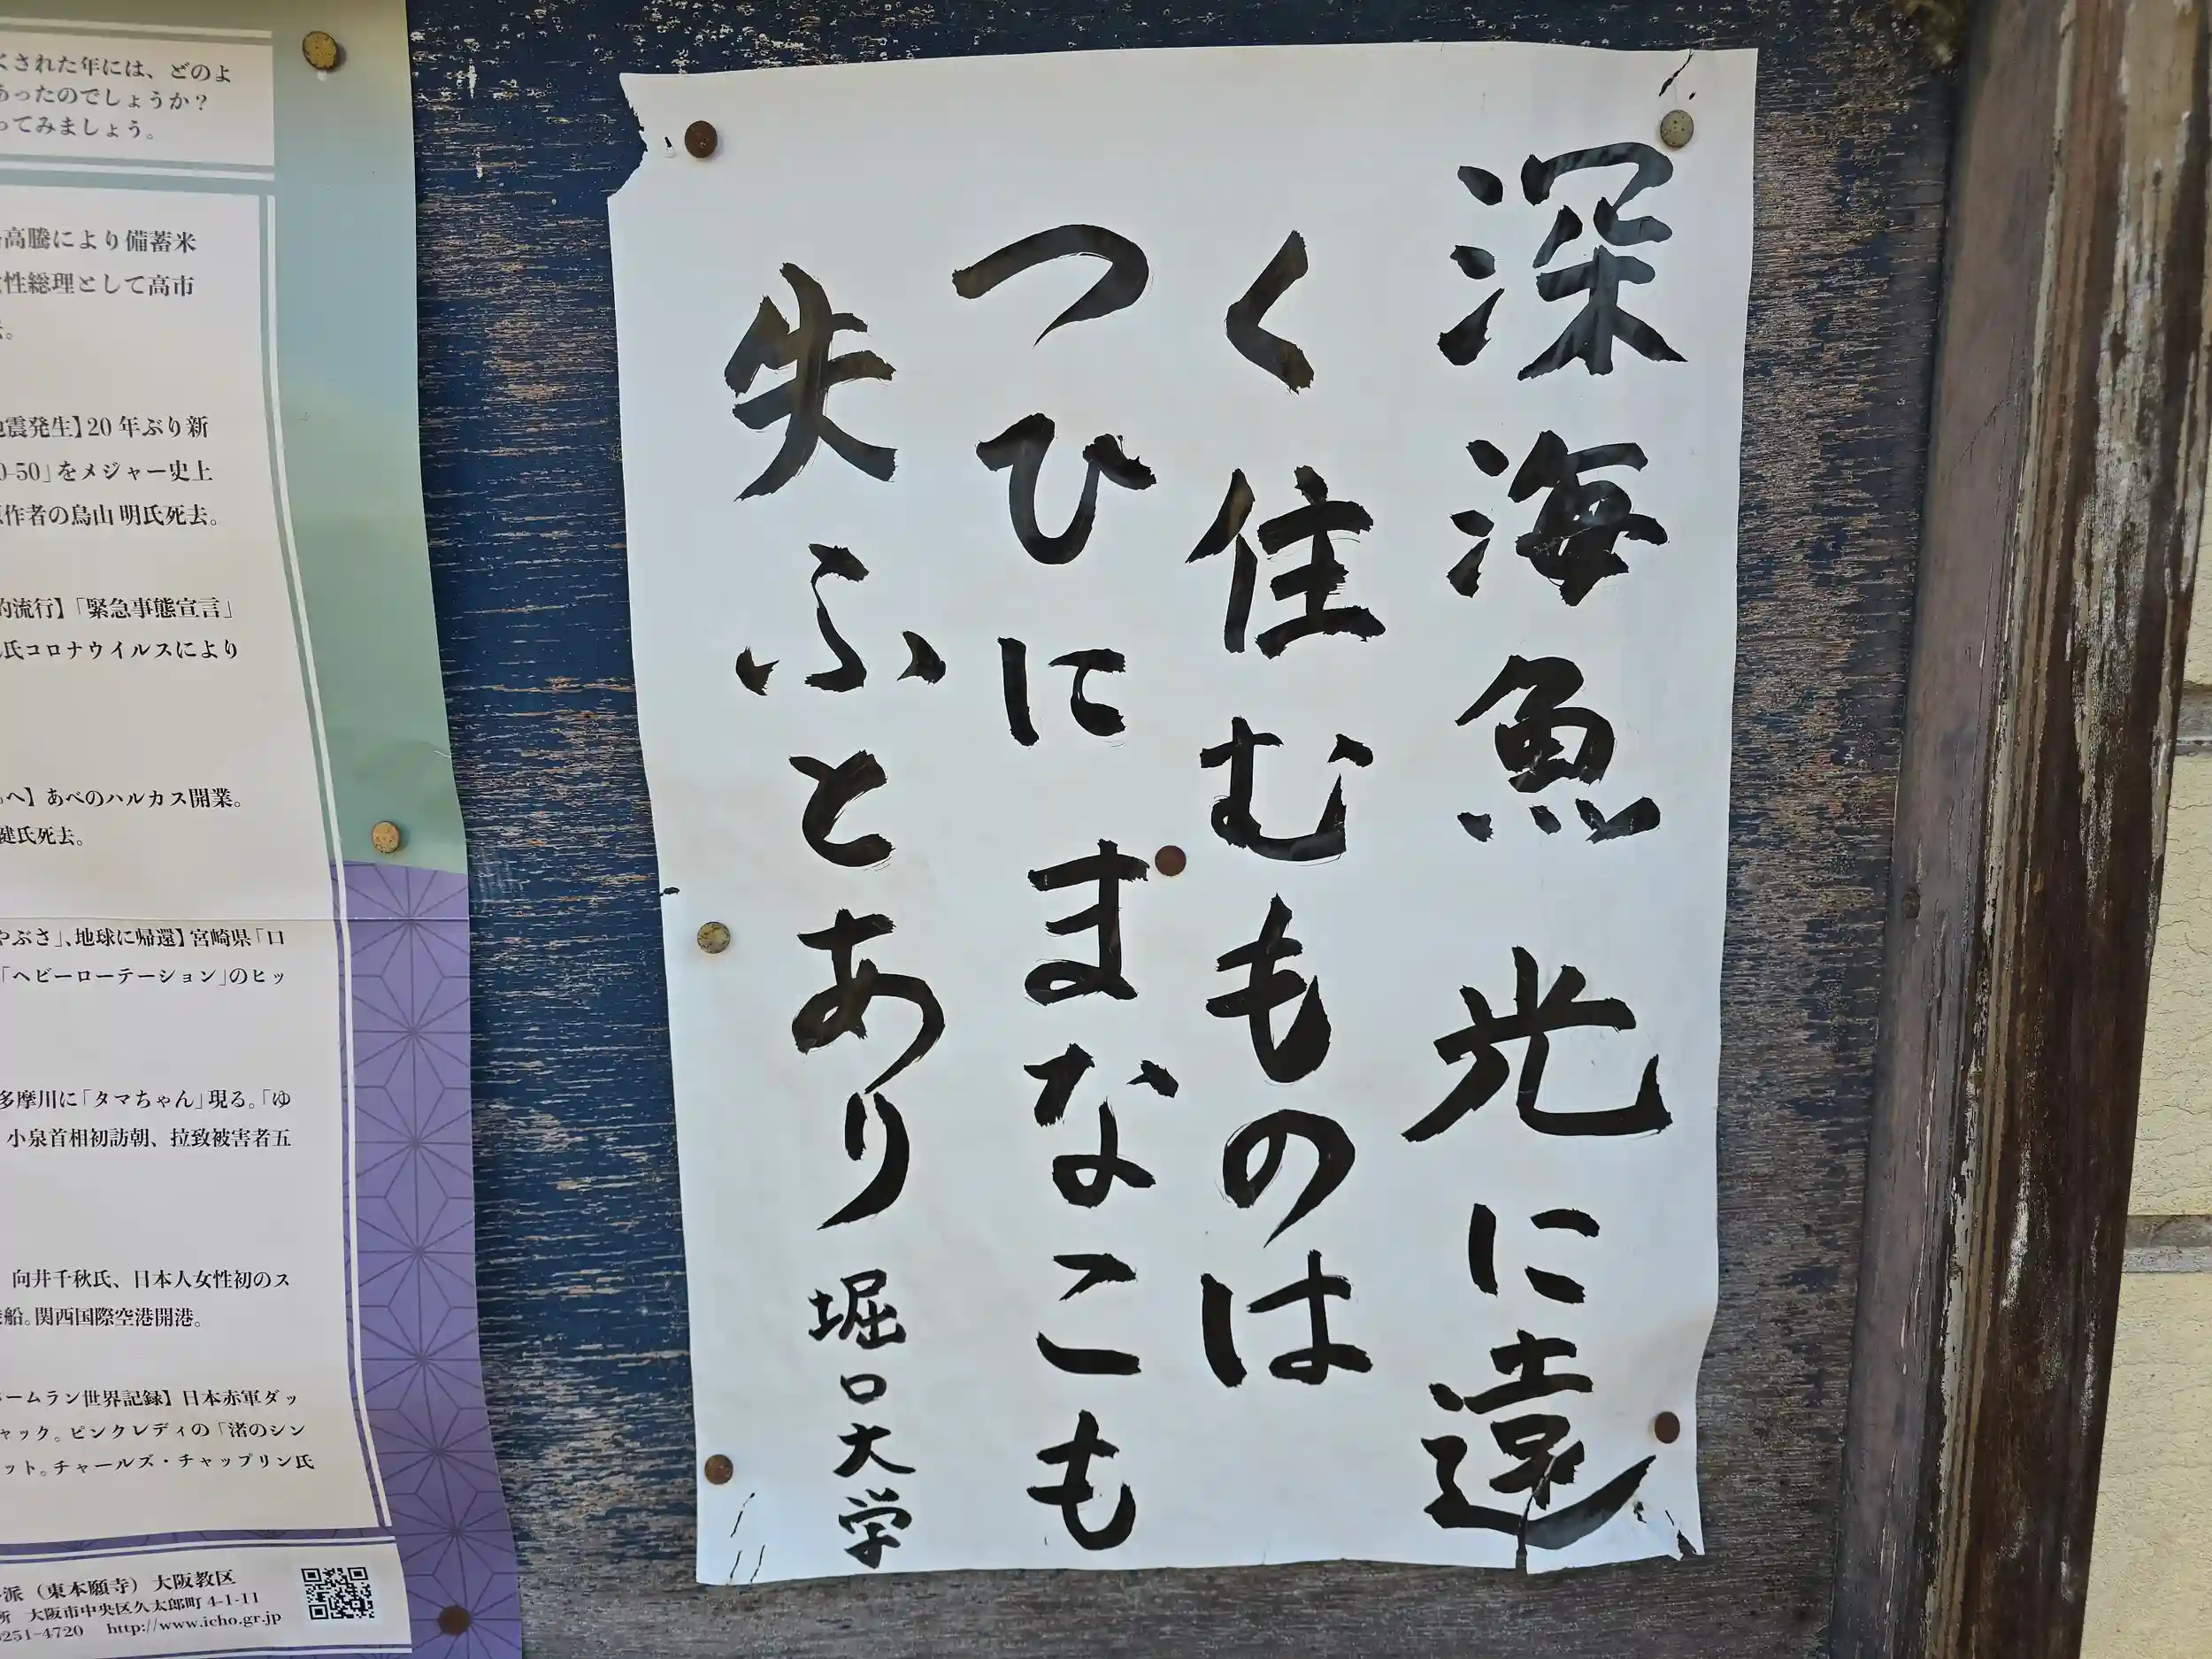 深海魚光に遠
く住むものは
つひにまなこも
失ふとあり 堀口大学
くされた年には、どのよ
あったのでしょうか？
ってみましょう。
高騰により備蓄米
性総理として高市
震発生】20年ぶり新
0-50」をメジャー史上
作者の鳥山明氏死去。
的流行】「緊急事態宣言」
氏コロナウイルスにより
へ】あべのハルカス開業。
健氏死去。
やぶさ」、地球に帰還】宮崎県「口
「ヘビーローテーション」のヒッ
多摩川に「タマちゃん」現る。「ゆ
小泉首相初訪朝、拉致被害者五
向井千秋氏、日本人女性初のス
船。関西国際空港開港。
ームラン世界記録】日本赤軍ダッ
ャック。ピンクレディの「渚のシン
ット。チャールズ・チャップリン氏
派（東本願寺）大阪教区
所 大阪市中央区久太郎町4-1-11
251-4720 http://www.icho.gr.jp